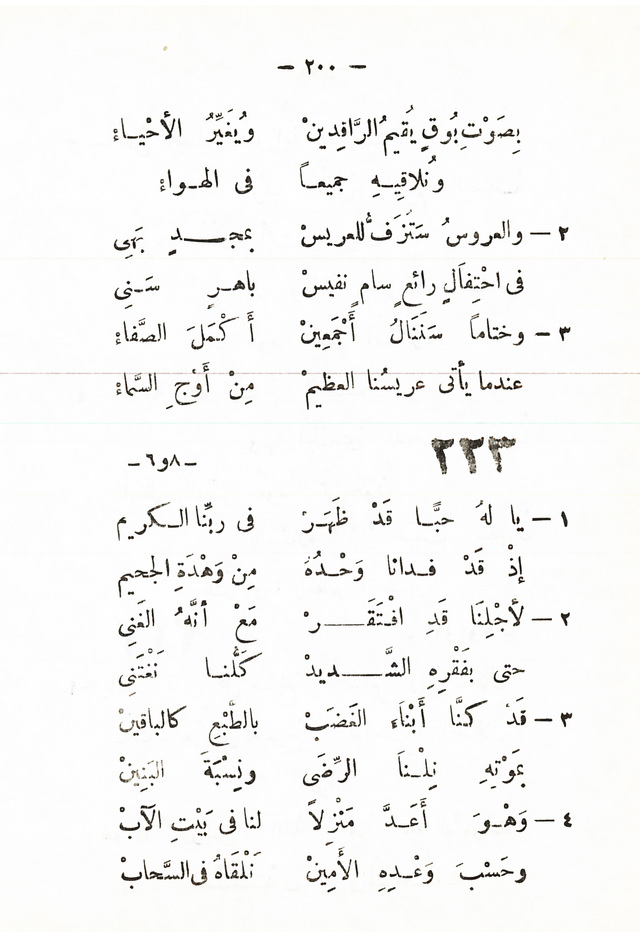 — ٢٠٠ —
بِصَوْتِ بُوقٍ يُقيمُ الرَّاقِدِينْ ويُغَيِّرُ الأحْيـاءْ
ونُلاقِيـهِ جميعـاً فى الهـواءْ
٢ — والعروسُ سَتُزَفُّ للعريسْ بمجـــدٍ بَهِى
فى احْتِفَالٍ رائعٍ سامٍ نفيسْ باهـرٍ سَـنِى
٣ — وختاماً سَنَنَالُ أَجْمَعِينْ أَكْمَلَ الصَّفاءْ
عندما يأتى عريسُنا العظيمْ مِنْ أَوْجِ السَّماءْ
٢٢٣ –٨و٦–
١ — يا لهُ حبًّـا قَدْ ظَهَـرْ فى ربِّنا الـكريم
إذْ قَدْ فـدانا وَحْـدُهُ مِنْ وَهْدَةِ الجحيم
٢ — لأجْلِنَا قَدِ افْـتَقَــــرْ مَعْ أنَّهُ الغَنِى
حتى بفَقْرِهِ الشَّــــديدْ كلُّنـا نَغْتَنِى
٣ — قَدْ كنَّا أَبْنَاءَ الغَضَبْ بالطَّبْعِ كالباقينْ
بمَوْتِهِ نِلْـنَا الرِّضَى ونِسْبَةَ البَنِينْ
٤ — وَهْـوَ أَعَـدَّ مَنْزِلاً لنا فى بَيْتِ الآبْ
وحَسْبَ وَعْـدِهِ الأمِينْ نَلْقَاهُ فى السَّحابْ